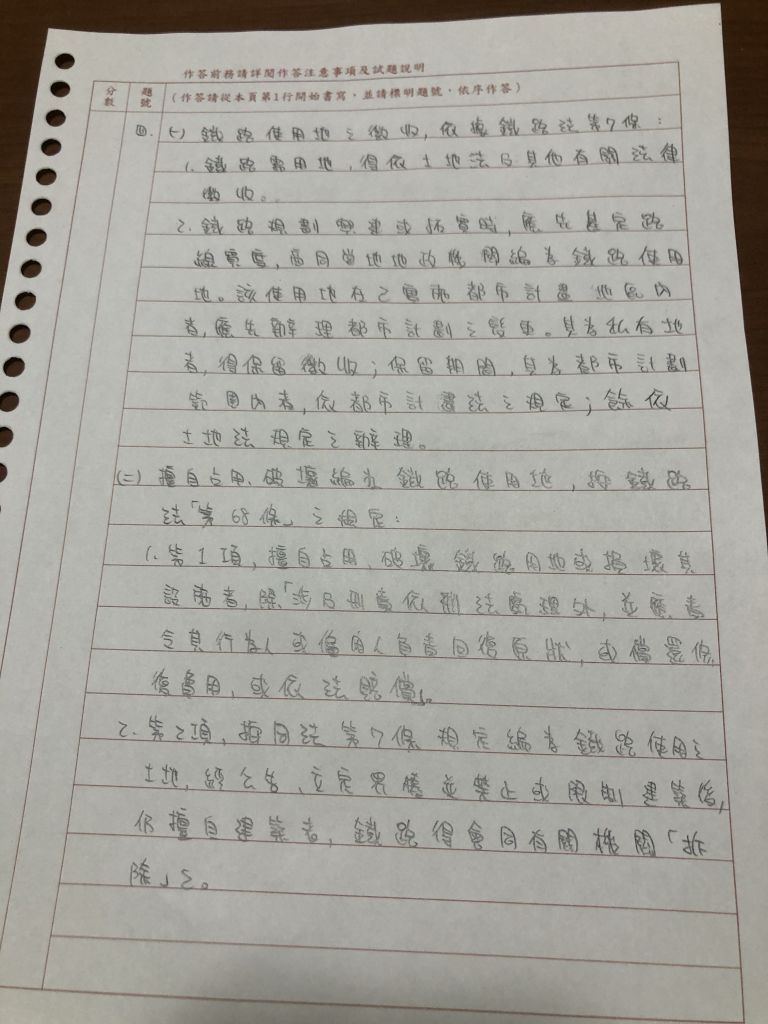 作答前務請詳閱作答注意事項及試題說明
分數 題號 (作答請從本頁第1行開始書寫,並請標明題號,依序作答)
四. (一) 鐵路使用地之徵收,依據鐵路法第7條:
1. 鐵路需用地,得依土地法及其他有關法律
徵收。
2. 鐵路規劃興建或拓寬時,應先勘定路
線寬度,商同當地地政機關編為鐵路使用
地。該使用地在已實施都市計畫地區內
者,應先辦理都市計劃之變更。其為私有地
者,得保留徵收;保留期間,其為都市計劃
範圍內者,依都市計畫法之規定;餘依
土地法規定之辦理。
(二) 擅自占用、破壞編為鐵路使用地,按鐵路
法「第68條」之規定:
1. 第1項,擅自占用、破壞鐵路用地或損壞其
設備者,除「涉及刑責依刑法處理外,並應責
令其行為人或僱用人負責回復原狀,或償還修
復費用,或依法賠償」。
2. 第2項,按同法第7條規定編為鐵路使用之
土地,經公告、立定界樁並禁止或限制建築後,
仍擅自建築者,鐵路得會同有關機關「拆
除」之。